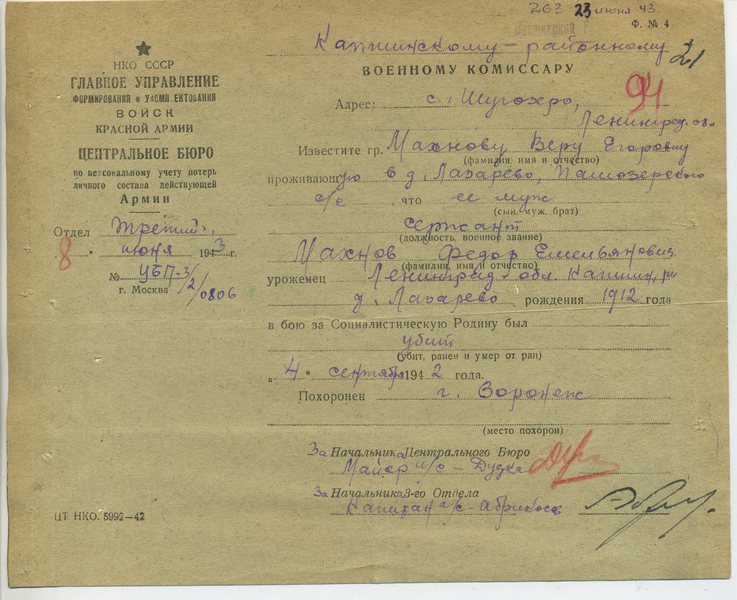 263 23 июня 43.
Ф. № 4
Капшинскому-районному
21
ВОЕННОМУ КОМИССАРУ
НКО СССР
ГЛАВНОЕ УПРАВЛЕНИЕ
ФОРМИРОВАНИЯ И УКОМПЛЕКТОВАНИЯ
ВОЙСК
КРАСНОЙ АРМИИ
ЦЕНТРАЛЬНОЕ БЮРО
по персональному учету потерь
личного состава действующей
Армии
Отдел Третий,
8 • июня 1943 г.
№ УБП-3/2/0806
г. Москва
Адрес: с. Шугозеро, 94
Ленинград. обл.
Известите гр. Махнову Веру Егоровну
(фамилия, имя и отчество)
проживающую в д. Лазарево, Пашозерского
с/с, что ее муж
(сын, муж, брат)
сержант
(должность, военное звание)
Махнов Федор Емельянович
(фамилия, имя и отчество)
уроженец Ленинград. обл. Капшин, рн
д. Лазарево рождения 1912 года
в бою за Социалистическую Родину был
убит
(убит, ранен и умер от ран)
„4" сентября 1942 года.
Похоронен г. Воронеж
(место похорон)
За Начальника Центрального Бюро
Майор и/с - Дудка
За Начальника 3-го Отдела
Капитан а/с - Абрикосов
ЦТ НКО. 5992-42